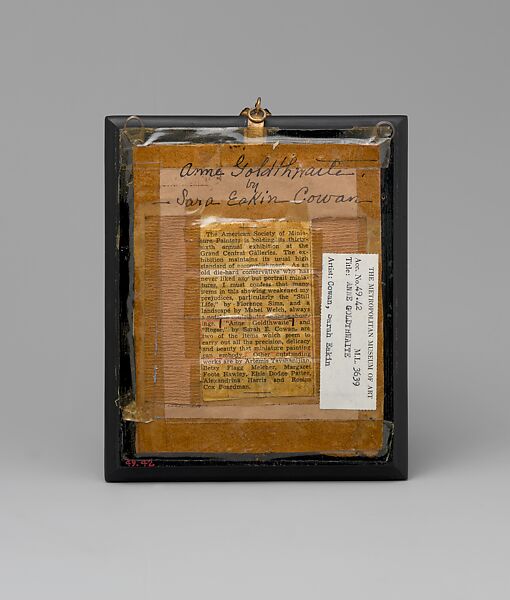 Anne Goldthwaite.
by
Sara Eakin Cowan
The American Society of Minia-
ture Painters is holding its thirty-
sixth annual exhibition at the
Grand Central Galleries. The ex-
hibition maintains its usual high
standard of accomplishment. As an
old die-hard conservative who has
never liked any but portrait minia-
tures, I must confess that many
items in this showing weakened my
prejudices, particularly the "Still
Life," by Florence Sims, and a
landscape by Mabel Welch, always
ings. "Anne Goldthwaite" and
"Ringer," by Sarah E. Cowan, are
two of the items which seem to
carry out all the precision, delicacy
and beauty that miniature painting
can embody. Other outstanding
works are by Artemis Tavshanjian,
Betsy Flagg Melcher, Margaret
Foote Hawley, Elsie Dodge Pattee,
Alexandrina Harris and Rosina
Cox Boardman.
THE METROPOLITAN MUSEUM OF ART
Acc. No. 49.42 M.L. 3639
Title: ANNE GOLDTHWAITE
Artist: Cowan, Sarah Eakin
49.42